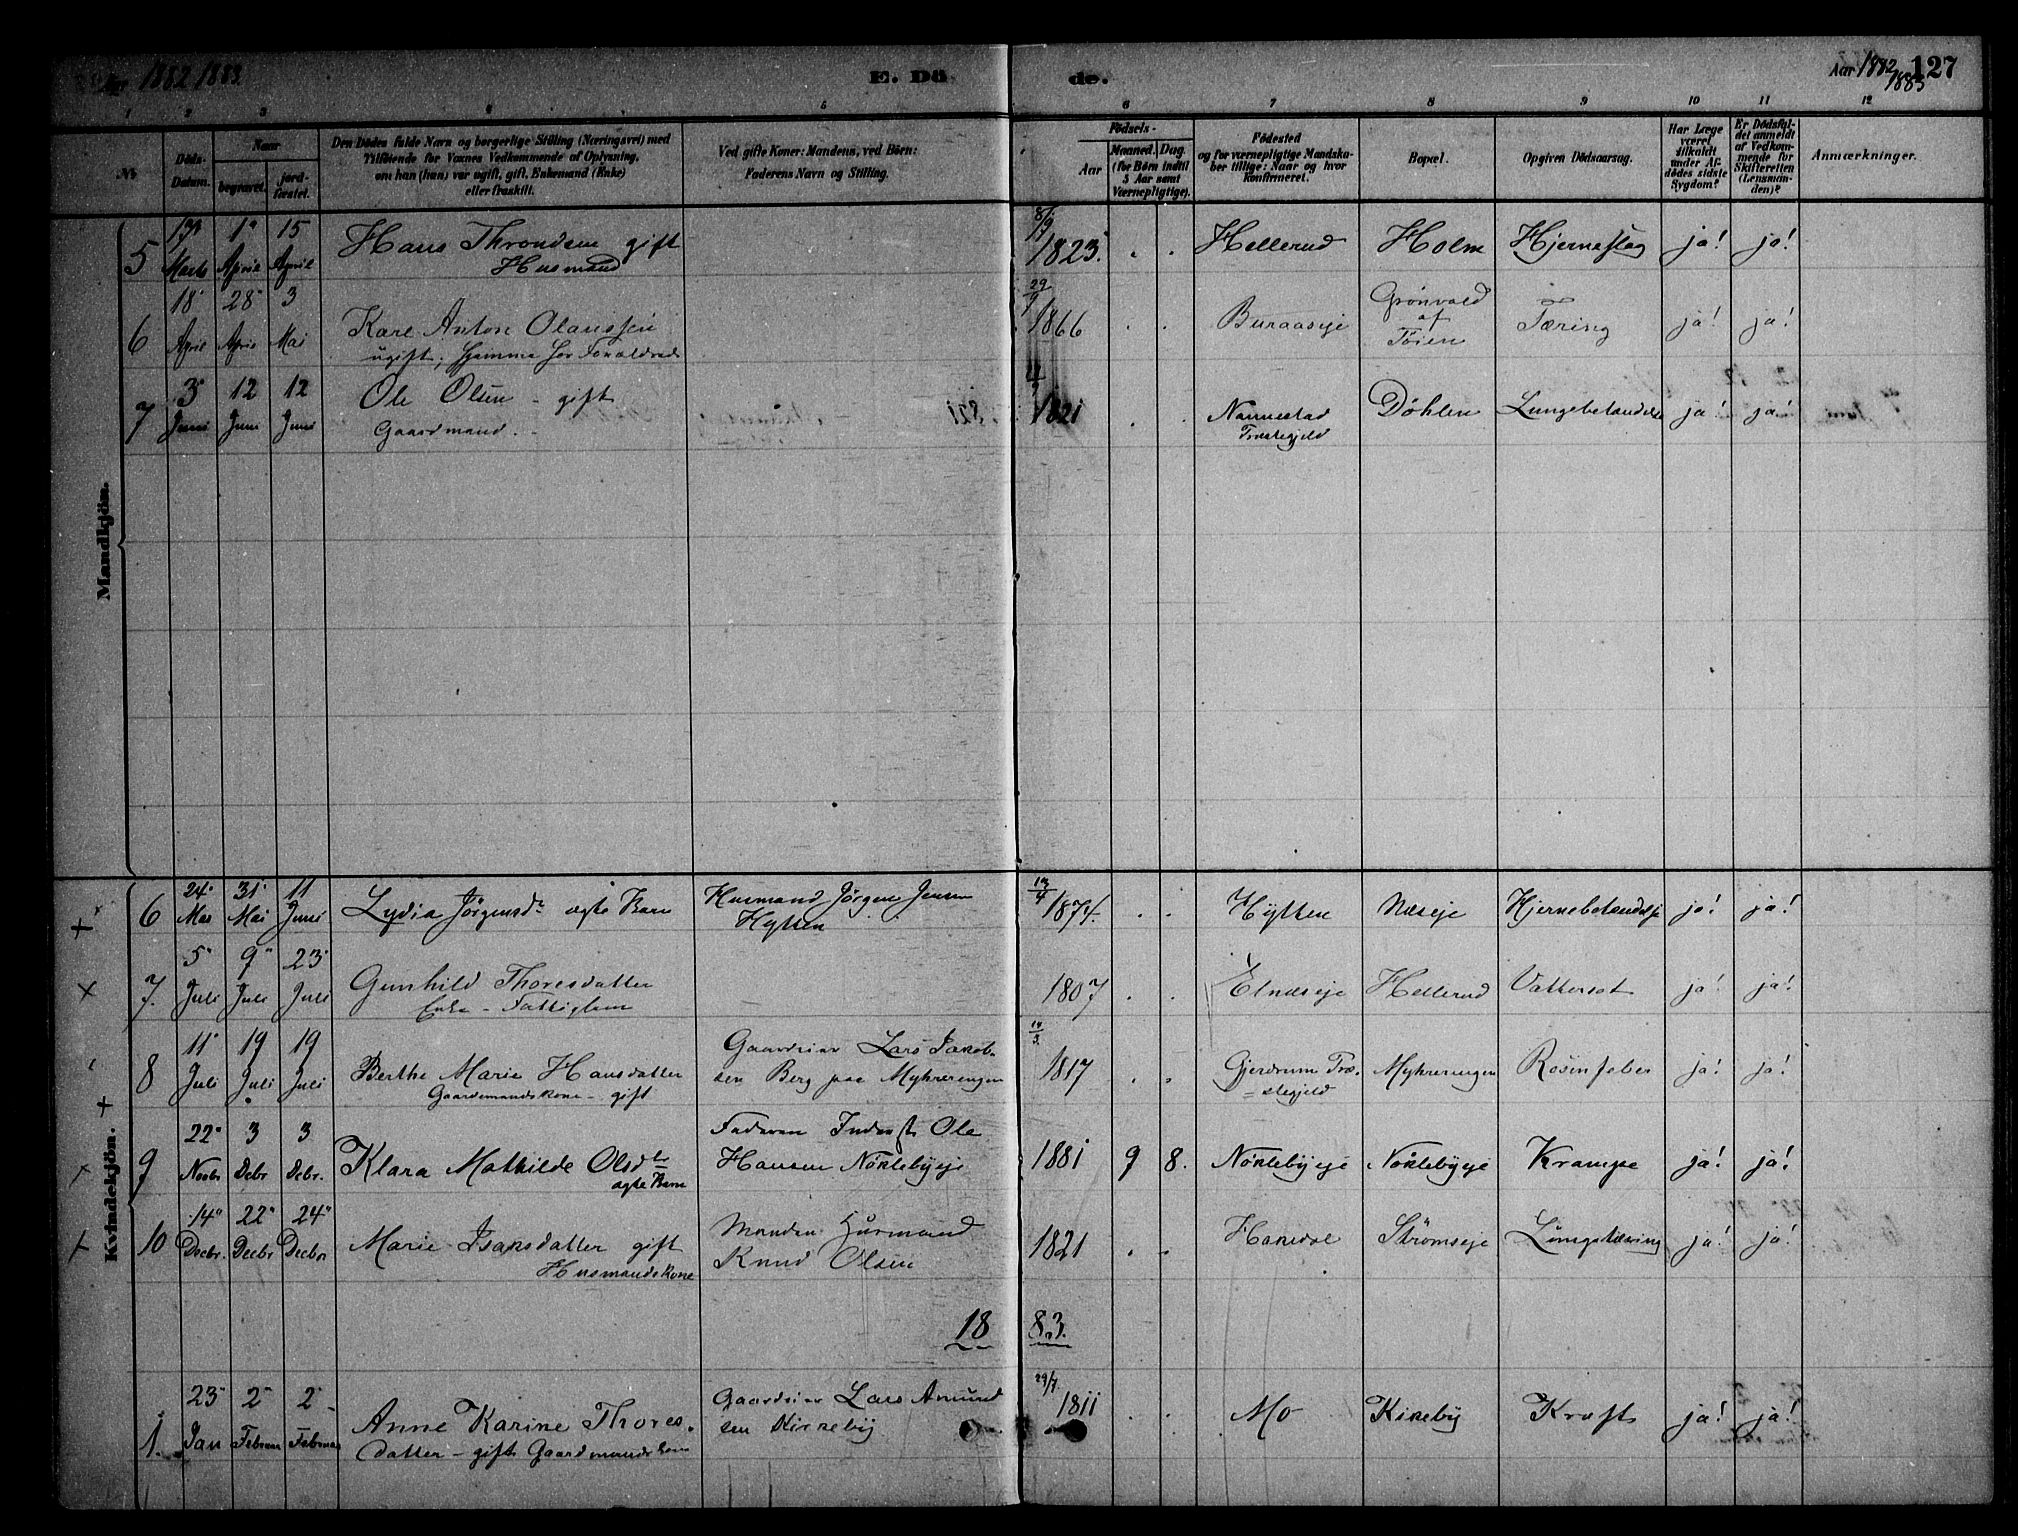 Aar 1882 1883.
E. Döde.
Aar 1882 1883
127
1 2 3 4 5 6 7 8 9 10 11 12
№
Döds-Datum.
Naar
begravet.
jordfæstet.
Den Dødes fulde Navn og borgerlige Stilling (Næringsvei) med
Tilföiende for Voxnes Vedkommende af Oplysning,
om han (hun) var ugift, gift, Enkemand (Enke)
eller fraskilt.
Ved gifte Koner: Mandens, ved Börn:
Faderens Navn og Stilling.
Födsels-
Aar
Maaned. Dag.
(for Börn indtil
5 Aar samt
Værnepligtige).
Födested
og for værnepligtige Mandska-
ber tillige: Naar og hvor
konfirmeret.
Bopæl.
Opgiven Dödsaarsag.
Har Læge
været
tilkaldt
under Af-
dödes sidste
Sygdom?
Er Dödsfal-
det anmeldt
af Vedkom-
mende for
Skifteretten
(Lensman-
den)?
Anmærkninger.
Mandkjön.
5 Marts 1 April 15 April Hans Throndsen gift
Husmand
8/9 1823. Hellerud Holm Hjerneslag ja! ja!
6 18 April 28 April 3 Mai Karl Anton Olaussen
ugift, hjemme hos Forældrene
29/9 1866 Buraaseje Grønvold af Töien Tæring ja! ja!
7 3 Juni 12 Juni 12 Juni Ole Olsen - gift
Gaardmand.
1821 Nannestad Præstegjeld Döhlen Lungebetændelse ja! ja!
Kvindekjön.
6 24 Mai 31 Mai 11 Juni Lydia Jørgensdr ægte Barn
Husmand Jörgen Jensen
Hytten
13/4 1877. Hytten Næseje Hjernebetændelse ja! ja!
7. 5 Juli 9 Juli 23 Juli Gunhild Thoresdatter
Enke - Fattiglem
1807 Elnæseje Hellerud Vattersot ja! ja!
8 11 Juli 19 Juli 19 Juli Berthe Marie Hansdatter
Gaardemandskone - gift
Gaardeier Lars Jakob-
sen Berg paa Myhrerengen
1817 Gjerdrum Præ-
stegjeld Myhrerengen Rosenfeber ja! ja!
9 22 Novbr 3 Debr 3 Debr. Klara Mathilde Olsdtr
ægte Barn
Faderen Inderst Ole
Hansen Nöklebyeje
1881 9 8. Nöklebyeje Nöklebyeje Krampe ja! ja!
10 14 Decbr. 22 Decbr 24 Decbr Marie Isaksdatter gift
Husmandskone
Manden Husmand
Knud Olsen
1821 Hakedal Strömseje Lungetæring ja! ja!
18 83.
1. 23 Jan 2 Februar 2 Februar Anne Karine Thores-
datter - gift Gaardmandskone
Gaardeier Lars Amund
sen Kirkeby
29/7. 1811 Mo Kirkeby Kræft ja! ja!